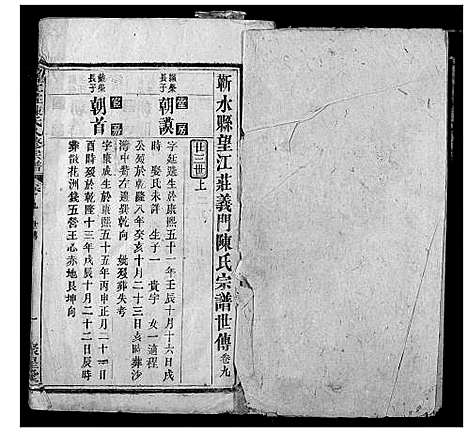 蘄水縣望江莊義門陳氏宗譜世傳 卷九
廿三世上
堂房
朝謨
長子
字延選生於康熙五十一年壬辰十月十六日戌
時 娶氏未詳 生子一 貴宇 女一適程
公歿於乾隆八年癸亥十月二十三日亥時葬沙
灣中嘴右邊巽乾向 妣歿葬失考
朝首
長子
字康成生於康熙五十五年丙申正月二十二日
時歿於乾隆十三年戊辰十月二十二日辰時
葬徽花洲錢五營王心赤地艮坤向